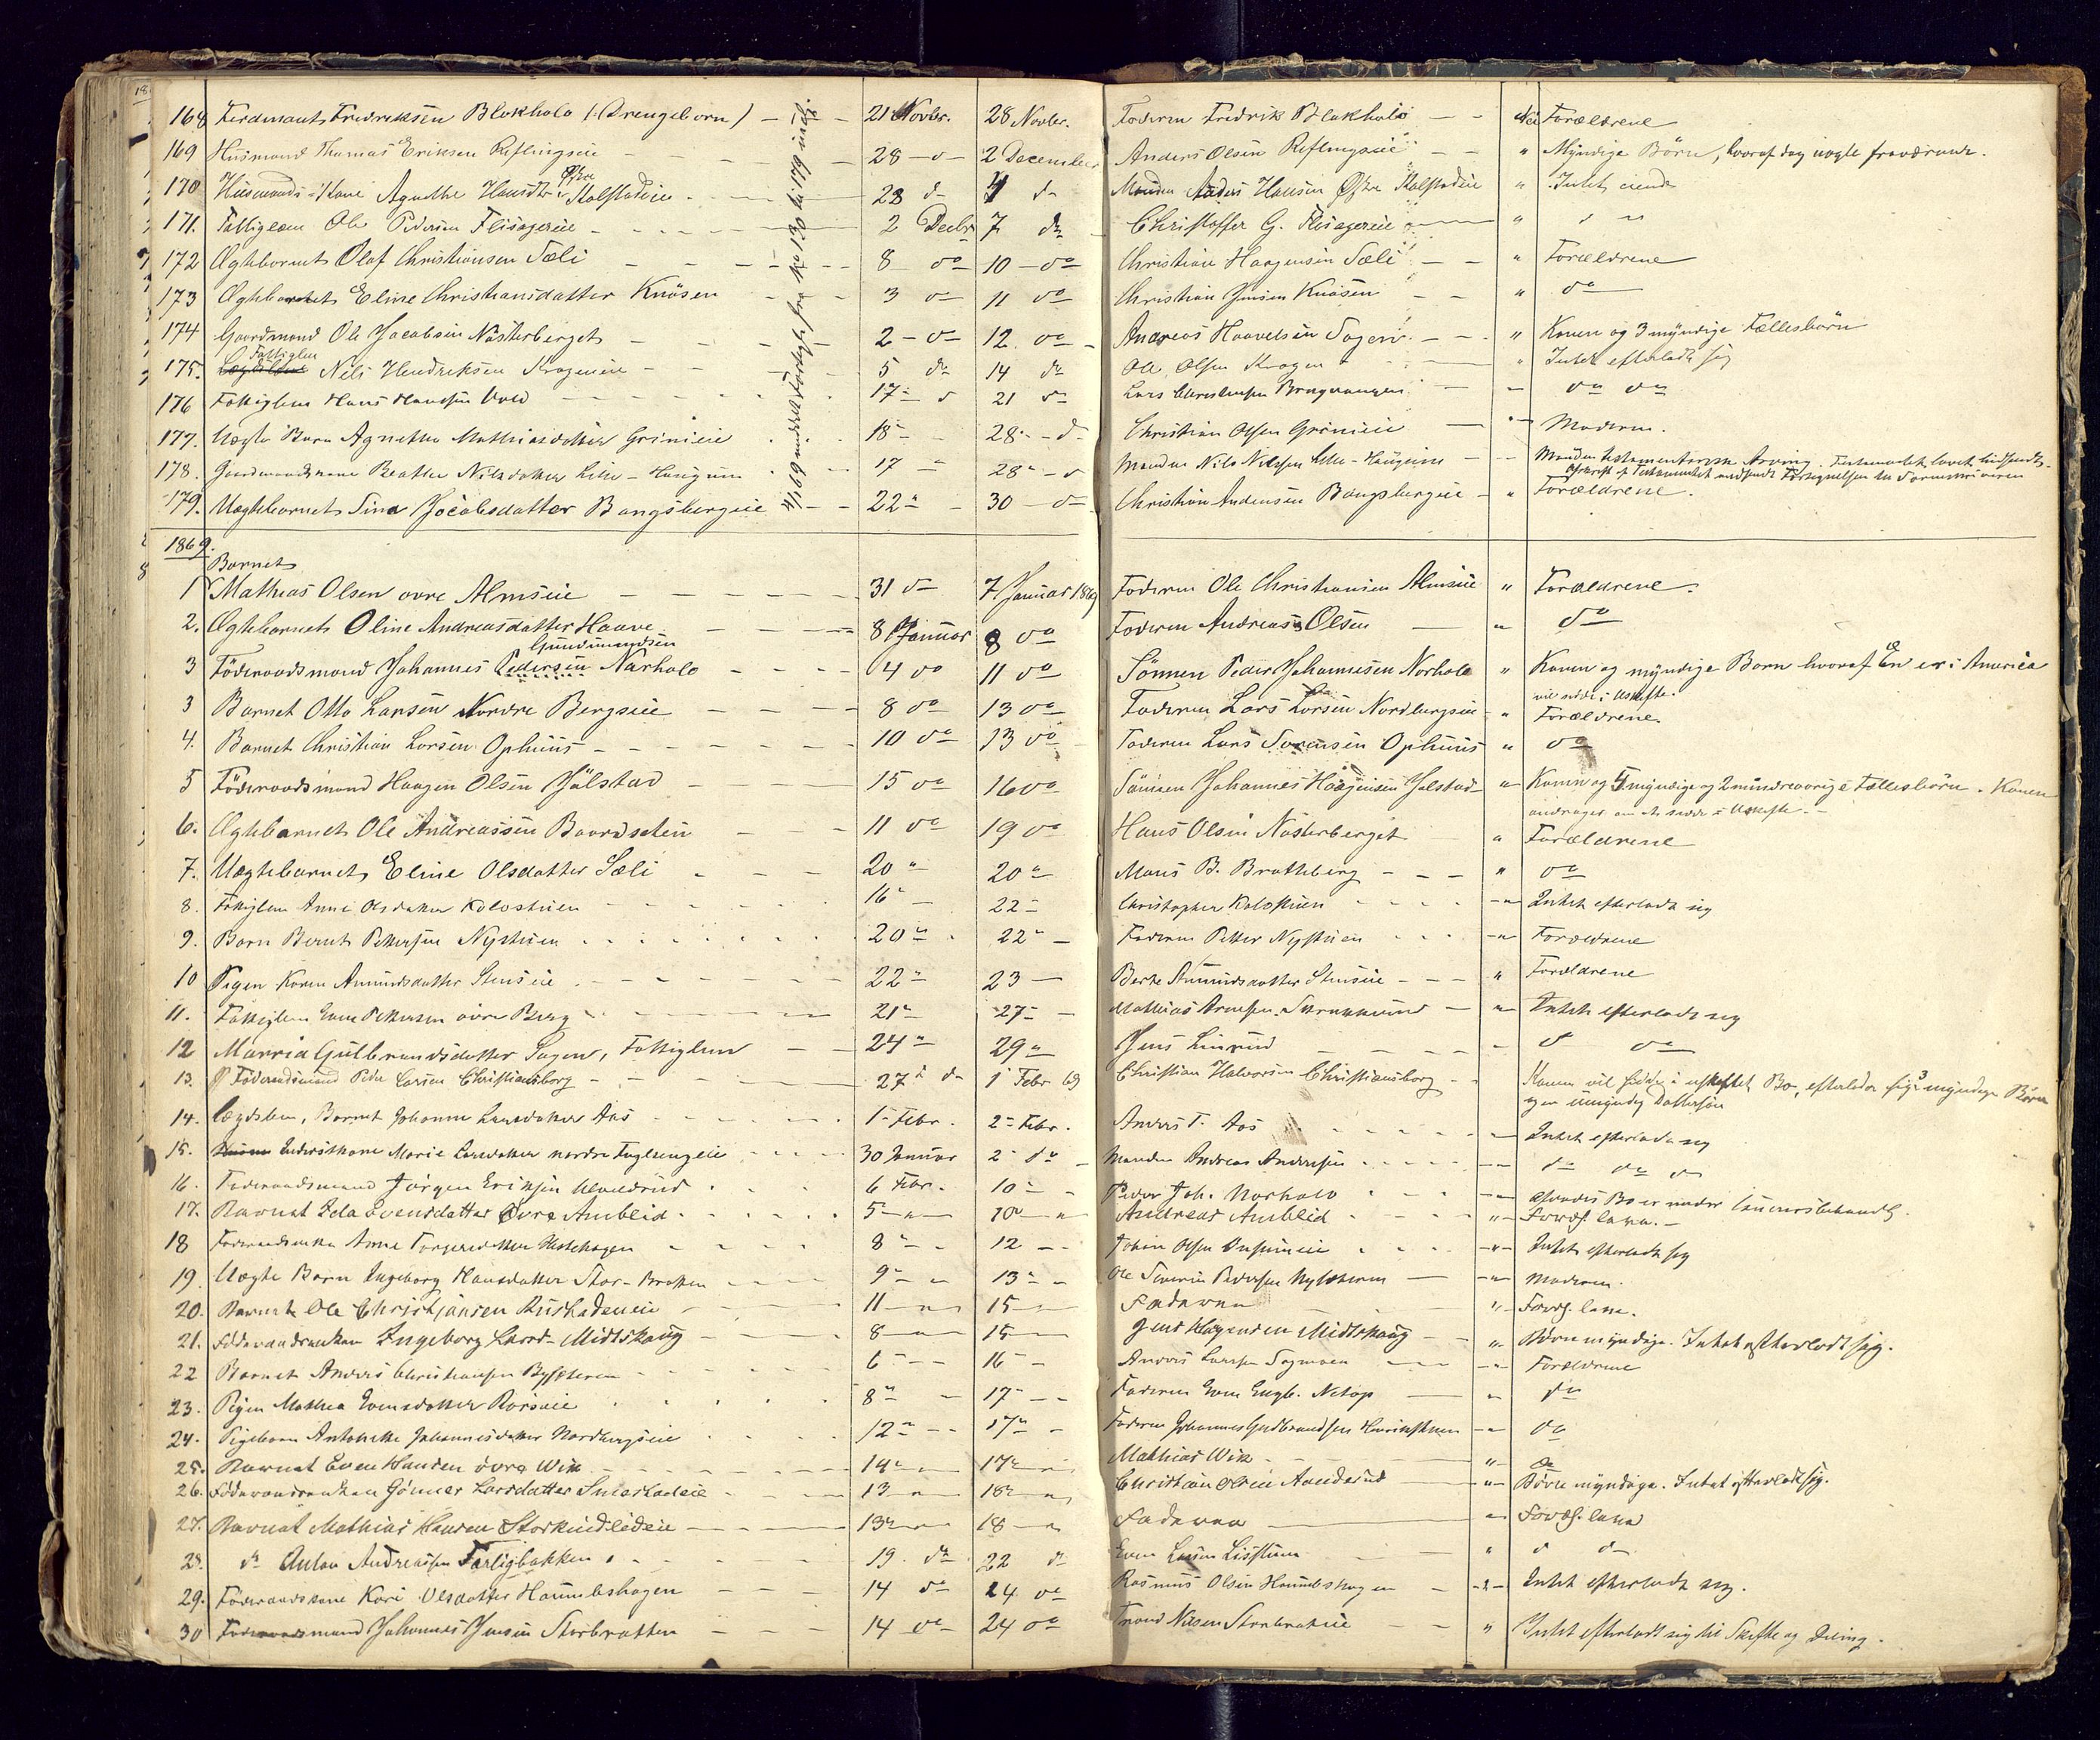 168 Ferdinant Fredriksen Blokholo (Drengebarn) 21 Novbr. 28 Novbr. Faderen Fredrik Blokholo Nei Forældrene
169 Husmand Thomas Eriksen Reflingseie 28 – d – 2 December Anders Olsen Reflingseie " Myndige Börn, hvoraf dog nogle fraværende.
170 Husmands-Kone Agnethe Hansdtr Östre Kolstadeie 28 d – 4 d – Manden Anders Hansen Östre Kolstadeie " Intet eiende
171. Fattiglem Ole Pedersen Flisagereie 2 Decbr 7 do Christoffer G. Flisagereie " " "
172 Ægtebarnet Olaf Christiansen Sæli 8 do 10 – do Christian Haagensen Sæli " Forældrene
173 Ægtebarnet Eline Christiansdatter Knösen 3 do 11 do Christian Jensen Knösen " do
174 Gaardmand Ole Jacobsen Nösterberget 2 – do 12. do Andreas Haavelsen Sagen " Konen og 3 myndige Fællesbörn
175. Fattiglem Nils Hendriksen Krageneie 5 do 14 do Ole Olsen Kragen " Intet efterladt sig
176 Fattiglem Hans Hansen Vold 17 – d 21 d – Lars Christensen do do
177. Uægte Barn Agnethe Mathiasdatter Grinieie 18 – 28 – d – Christian Olsen Grinieie " Moderen.
178. Gaardmandskone Beathe Nilsdatter Lille-Haugum 17 " 28 – d Manden Nils Nilsen Lille-Haugum Manden testamentarisk Arving. Testamentet lovet indsendt.
Afskrift af Testamentet indsendt
179. Uægtebarnet Sina Jacobsdatter Bangsbergeie 22 " 30 – d – Christian Andersen Bangsbergeie " Forældrene.
21/1 69 indsendt Fortegnelse fra No 130 til 179 incl.
1869.
1 Barnet Mathias Olsen ovre Almseie 31 d – 7 Januar 1869 Faderen Ole Christiansen Almseie " Forældrene.
2. Ægtebarnet Oline Andreasdatter Haave 8 Januar 8 do Faderen Andreas Olsen " do
3 Föderaadsmand Johannes Pedersen Gundmundsen Norholo 4 do 11 do Sönnen Peder Johannesen Norholo " Konen og myndige Börn hvoraf En er i America
vil sidde i Uskifte.
3 Barnet Otto Larsen Nordre Bergseie 8 do 13 do Faderen Lars Larsen Nordbergseie " Forældrene.
4. Barnet Christian Larsen Ophuus 10 do 13 do Faderen Lars Sorensen Ophuus " do
5 Föderaadsmand Haagen Olsen Jölstad 15 do 16 do Sönnen Johannes Haagensen Jölstad " Konen og 5 myndige og 2 mindreaarige Fællesbörn. Konen
andrager om at sidde i Uskifte.
6. Ægtebarnet Ole Andreassen Baardseten 11 do 19 do Hans Olsen Nösterberget " Forældrene
7. Uægtebarnet Eline Olsdatter Sæli 20 " 20 " Maus B. Brathberg " do
8. Fattiglem Anne Olsdatter Kolostuen 16 " 22 – Christopher Kolostuen " Intet efterladt sig
9. Barn Bernt Pettersen Nystuen 20 " 22 " Faderen Petter Nystuen " Forældrene
10 Pigen Karen Amundsdatter Stenseie 22 " 23 – Berte Amundsdatter Stenseie " Forældrene
11. Fattiglem Even Pettersen övre Berg 21 " 27 – Mathias Arnesen " Intet efterladt sig
12 Marria Gulbrandsdatter Sagen, Fattiglem 24 " 29 " Jens Linrud d do
13. Föderaadsmand Peder Larsen Christiansborg 27 " d – 1 Febr 69 Christian Halvorsen Christiansborg Konen vil sidde i uskiftet Bo, efterlader sig 3 myndige Börn
og en umyndig Dattersön
14. Lægdslem, Barnet Johanne Larsdatter Aas 1 – Febr. 2 – Febr. Anders T. Aas " Intet efterladt sig
15. Inderstkone Marie Larsdatter nordre Fuglsengeie 30 Januar 2 – do Manden Andreas Andersen do do do
16. Föderaadsmand Jörgen Eriksen Ulvildrud 6 Febr. 10 – Peder Joh. Norholo Afdødes Bo er under Concursbehandl.
17. Barnet Ida Evensdatter Övre Amblid 5 – " 10 " Andreas Amblid " Foræl.lene.
18 Föderaadsenke Anne Torgersdatter Hestehagen 8 " 12 – Johan Olsen " Intet efterladt sig
19. Uægte Barn Ingeborg Hansdatter Stor-Braten 9 " 13 " Ole Severin Pedersen " Moderen.
20. Barnet Ole Christjansen Rustadeneie 11 " 15 " Faderen " Foræl.lene.
21. Föderaadsenken Ingeborg Larsd. Midtskaug 8 " 15 " Jens Haagensen Midtskaug " Börn myndige. Intet efterladt sig.
22 Barnet Anders Christiansen 6 – 16 – Anders Larsen Sogmoen " Forældrene
23. Pigen Mathea Evensdatter Rörseie 8 " 17 – Faderen Even Engb. Netop " do
24. Pigebarn Antonette Johannesdatter Nordbergseie 12 " 17 " Faderen Johannes Gudbrandsen " do
25. Barnet Even Hansen övre Wik 14 " 17 " Mathias Wik " do
26. Föderaadsenken Gönner Larsdatter 13 " 18 " Christian Olsen Aanderud " Börn myndige. Intet efterladt sig.
27. Barnet Mathias Hansen Storkindlideie 13 " 18 " Faderen " Foræl.lene
28. do Anton Andreassen Farligbakken 19 do 22 do Even Larsen Lisstuen " d d –
29. Föderaadskone Kari Olsdatter Hommelshagen 14 do 24 do Rasmus Olsen Hommelshagen " Intet efterladt sig.
30 Föderaadsmand Johannes Jensen Storbratten 14 do 24 do Trond Nilsen Storbrateie " Intet efterladt sig til Skifte og Deling.